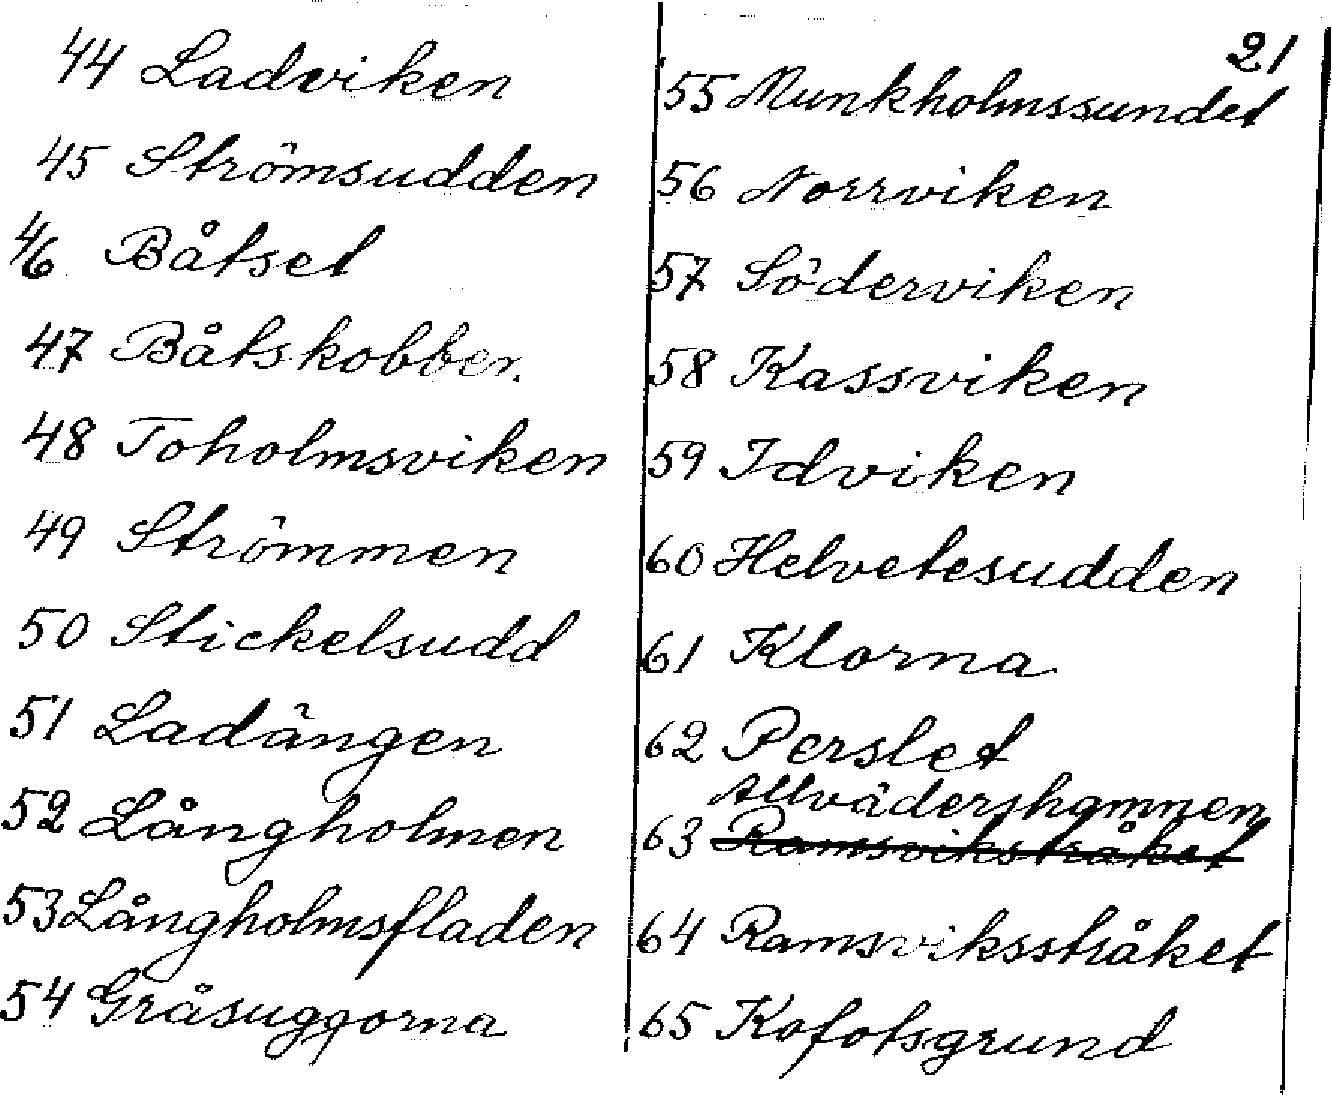 21
44 Ladviken
45 Strömsudden
46 Båtset
47 Båtskobben
48 Toholmsviken
49 Strömmen
50 Stickelsudd
51 Ladängen
52 Långholmen
53 Långholmsfladen
54 Gråsuggorna
55 Munkholmssundet
56 Norrviken
57 Söderviken
58 Kassviken
59 Idviken
60 Helvetesudden
61 Klorna
62 Perslet
Allvädershamnen
63 Ramsviksstråket
64 Ramsviksstråket
65 Kofotsgrund